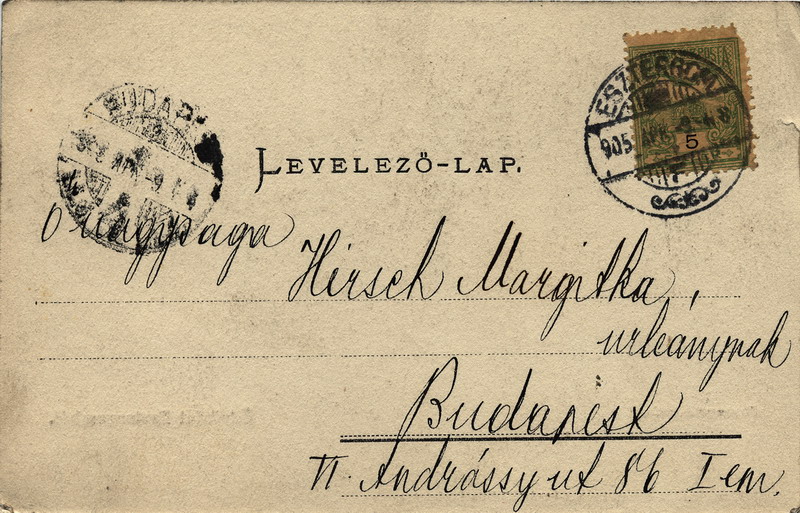 POSTA
ESZTERGOM
905 APR.
5
BUDAPEST
APR
LEVELEZŐ-LAP.
Ő nagysága
Hirsch Margitka,
urleánynak
Budapest
VI. Andrássy ut 86 I em.